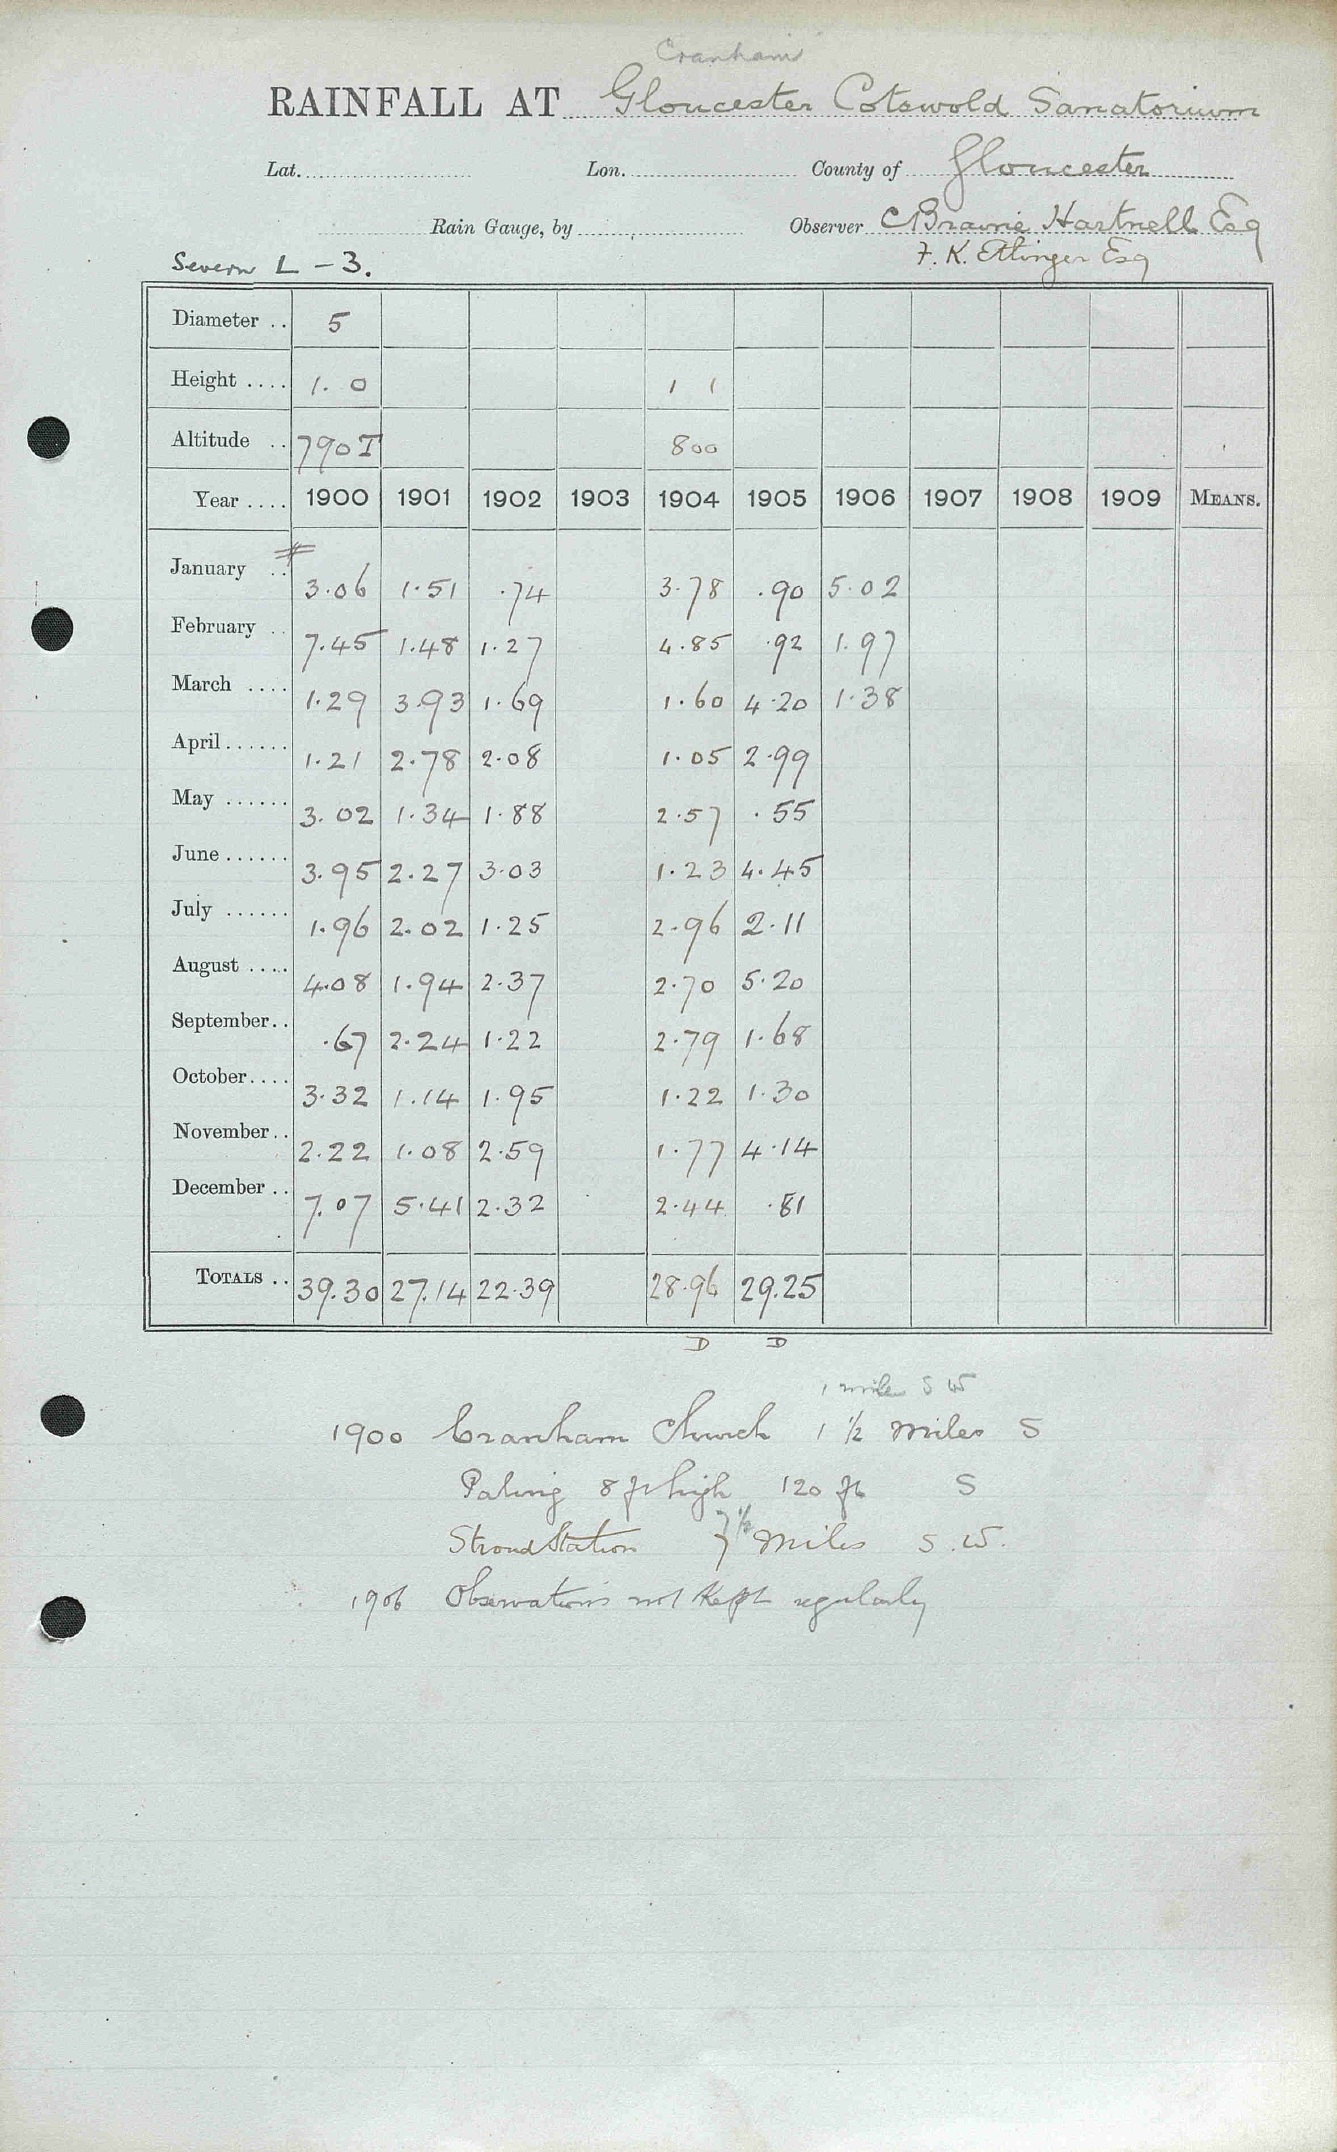 Cranham
RAINFALL AT Gloucester Cotswold Sanatorium
Lat. Lon. County of Gloucester
Rain Gauge, by Observer C Braine Hartnell Esq
Severn L - 3. F. K. Ettinger Esq
Diameter .. 5
Height .... 1. 0 1 1
Altitude .. 790 T 800
Year .... 1900 1901 1902 1903 1904 1905 1906 1907 1908 1909 MEANS.
January .. # 3.06 1.51 .74 3.78 .90 5.02
February .. 7.45 1.48 1.27 4.85 .92 1.97
March .... 1.29 3.93 1.69 1.60 4.20 1.38
April ...... 1.21 2.78 2.08 1.05 2.99
May ...... 3.02 1.34 1.88 2.57 .55
June ...... 3.95 2.27 3.03 1.23 4.45
July ...... 1.96 2.02 1.25 2.96 2.11
August .... 4.08 1.94 2.37 2.70 5.20
September.. .67 2.24 1.22 2.79 1.68
October.... 3.32 1.14 1.95 1.22 1.30
November.. 2.22 1.08 2.59 1.77 4.14
December .. 7.07 5.41 2.32 2.44 .81
TOTALS .. 39.30 27.14 22.39 28.96 29.25
D D
1 mile S W
1900 Cranham Church 1 1/2 miles S
Paling 8 ft high 120 ft S
Stroud Station 7 1/2 miles S.W.
1906 Observations not kept regularly